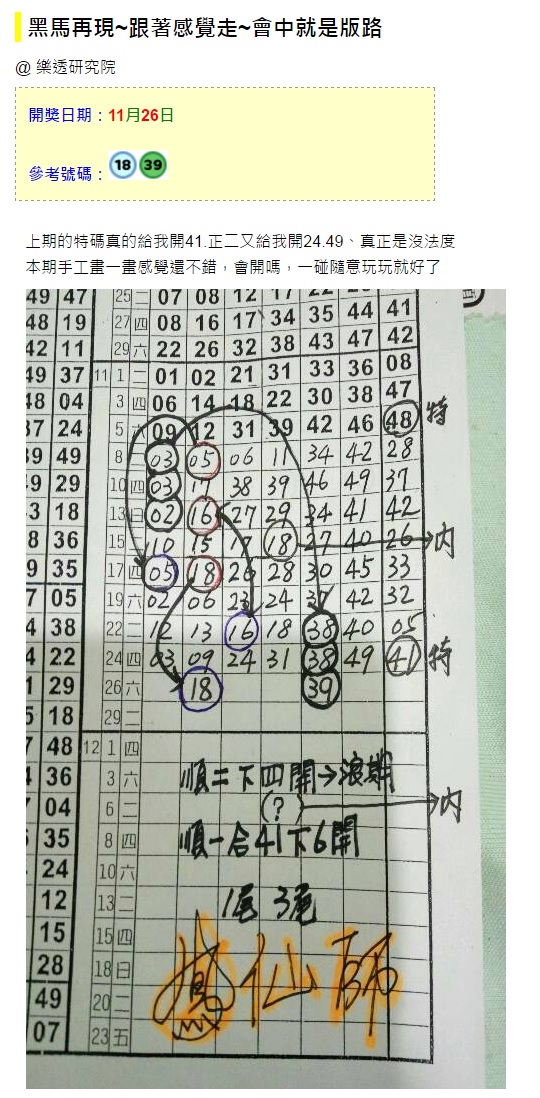 黑馬再現~跟著感覺走~會中就是版路
@ 樂透研究院
開獎日期：11月26日
參考號碼：18 39
上期的特碼真的給我開41.正二又給我開24.49、真正是沒法度
本期手工畫一畫感覺還不錯，會開嗎，一碰隨意玩玩就好了
49 47 25 二 07 08 12 17 22
48 19 27 四 08 16 17 34 35 44 41
42 11 29 六 22 26 32 38 43 47 42
49 37 11 1 二 01 02 21 31 33 36 08
48 04 3 四 06 14 18 22 30 38 47
37 24 5 六 09 12 31 39 42 46 48 特
39 49 8 二 03 05 06 11 34 42 28
49 29 10 四 03 17 38 39 46 49 37
3 18 13 日 02 16 27 29 34 41 42
8 36 15 二 10 15 17 18 27 40 26 內
9 35 17 四 05 18 26 28 30 45 33
7 05 19 六 02 06 23 24 37 42 32
4 38 22 二 12 13 16 18 38 40 05
4 22 24 四 03 09 24 31 38 49 41 特
1 29 26 六 18 39
5 18 29 二
7 48 12 1 四
4 36 3 六 順二下四開→浪期
7 04 6 二 (?) 內
35 8 四 順一合41下6開
24 10 六
12 13 二 1尾 3尾
15 15 四
28 18 日 鳳仙師
49 20 二
07 23 五